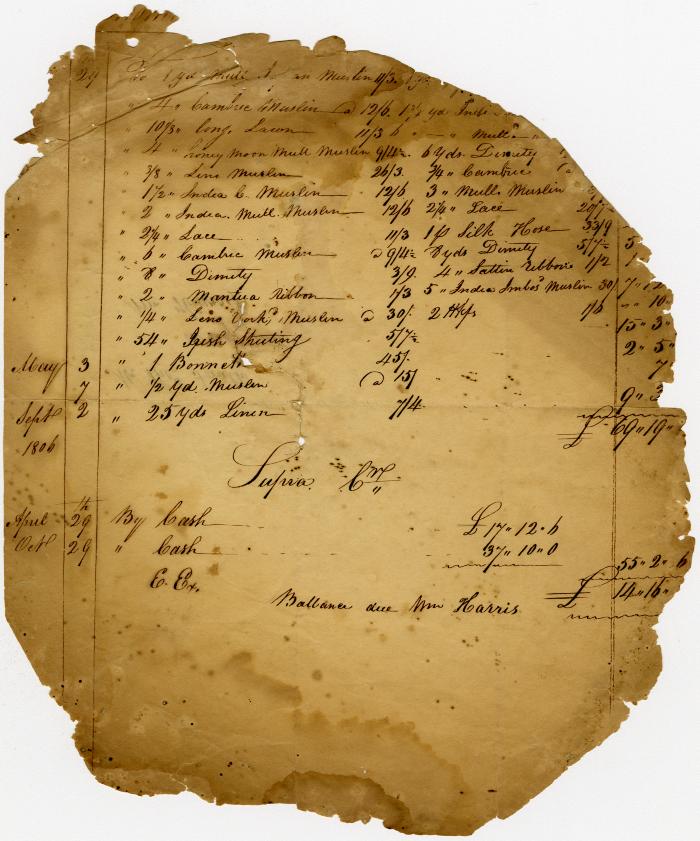 29 To 1 yd Mull Muslin 11/3
" 4 " Cambric Muslin @ 12/6 1 1/2 yd
" 10 3/8 " Long Lawn 11/3 6 " Mull "
" 4 " honey moon Mull Muslin 9/4 1/2 6 yds Dimity
" 3/8 " Leno Muslin 26/3 3/4 " Cambric
" 1 1/2 " India C. Muslin 12/6 3 " Mull Muslin
" 2 " India Mull Muslin 12/6 2 1/4 " Lace
" 2 1/4 " Lace 11/3 1 p Silk Hose 33/9
" 6 " Cambric Muslin @ 9/4 1/2 8 yds Dimity 5/7 1/2 5
" 8 " Dimity 3/9 4 " Sattin Ribbon 1/2
" 2 " Mantua Ribbon 1/3 5 " India Imbos Muslin 30/ 7 " 12
" 1/4 " Leno Work'd Muslin @ 30/. 2 Hkfs 1/6 " 10
" 54 " Irish Sheeting 5/7 1/2 15 " 3
May 3 " 1 Bonnet 45/ 2 " 5
7 " 1/2 yd Muslin @ 15/ 7
Sept 2 " 25 yds Linen 7/4 9 " 3
1806 £ 69 " 19 "
Supra Cr
April 29th By Cash £ 17 " 12 " 6
Oct 29 " Cash 37 " 10 " 0
55 " 2 " 6
E. Ex. £ 14 " 16 "
Ballance due Wm Harris